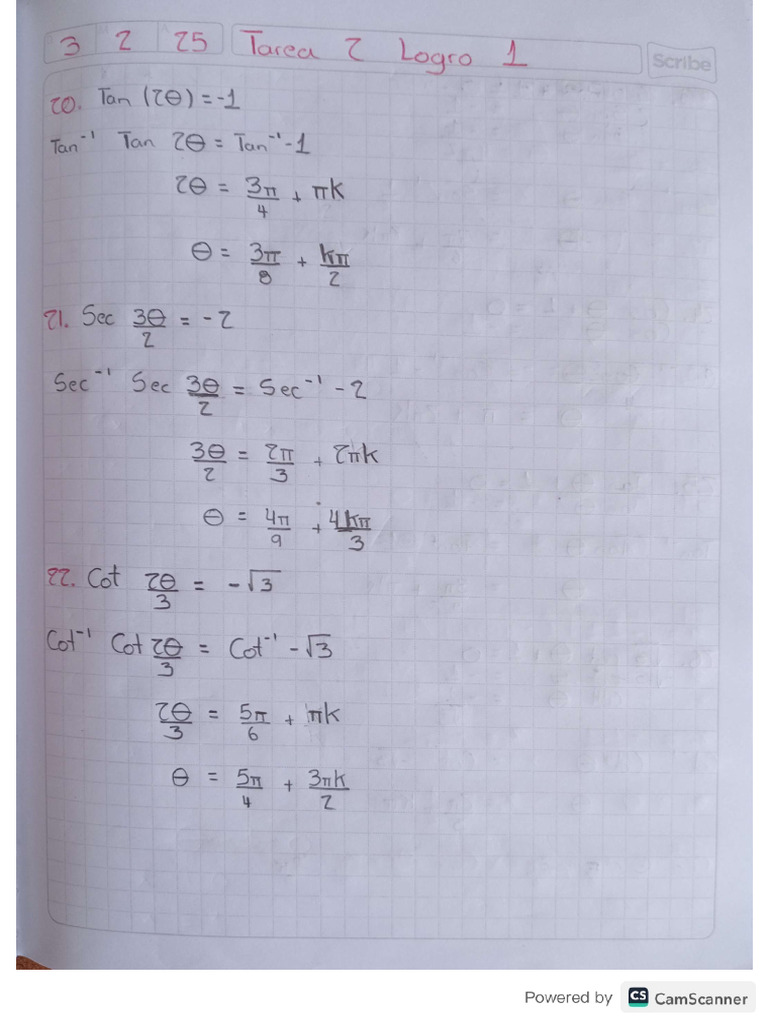 3 2 25 Tarea 2 Logro 1
Scribe
20. Tan (2θ) = -1
Tan⁻¹ Tan 2θ = Tan⁻¹ -1
2θ = 3π/4 + πk
θ = 3π/8 + kπ/2
21. Sec 3θ/2 = -2
Sec⁻¹ Sec 3θ/2 = Sec⁻¹ -2
3θ/2 = 2π/3 + 2πk
θ = 4π/9 + 4kπ/3
22. Cot 2θ/3 = -√3
Cot⁻¹ Cot 2θ/3 = Cot⁻¹ -√3
2θ/3 = 5π/6 + πk
θ = 5π/4 + 3πk/2
Powered by CS CamScanner